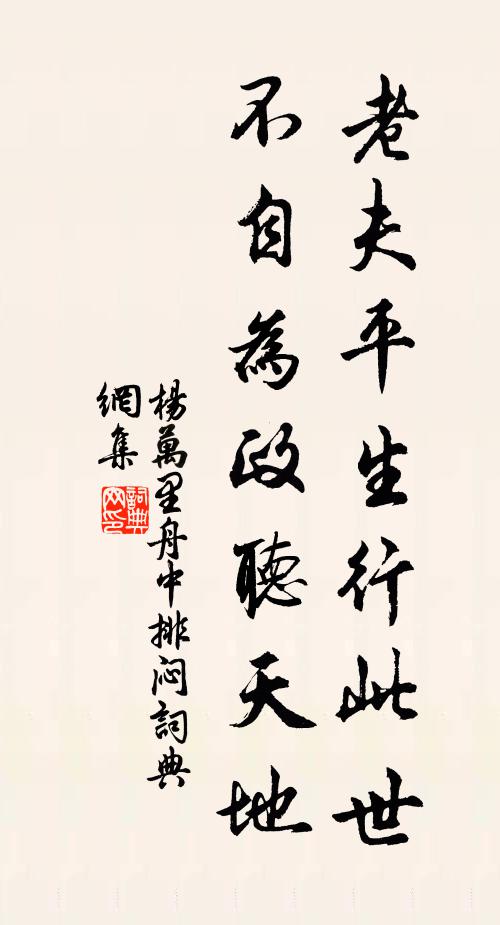 老夫平生行此世
不自為政聽天地
楊萬里舟中排悶詞典
網集
詞典
网印